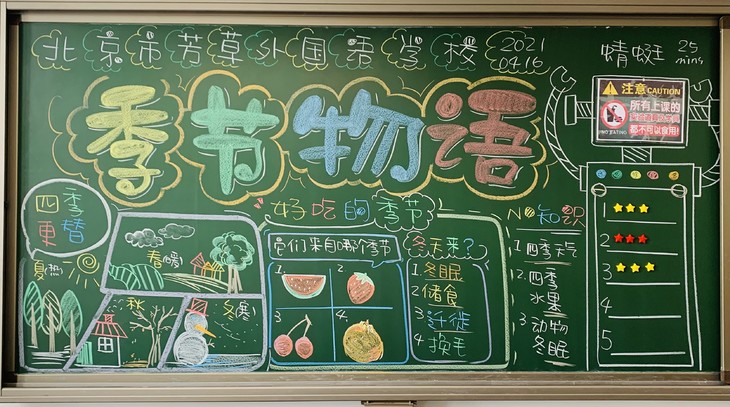 北京市芳草外国语学校
2021
0416
蜻蜓 25
mins
季节物语
注意 CAUTION
所有上课的
都不可以食用!
NO EATING
四季
更替
好吃的季节
NO 知识
夏热
春暖
秋
冬寒
它们来自哪个季节
1.
2.
3
4.
冬天来?
1.冬眠
2储食
3迁徙
4换毛
1四季天气
2.四季
水果
3动物
冬眠
1
2
3
4
5